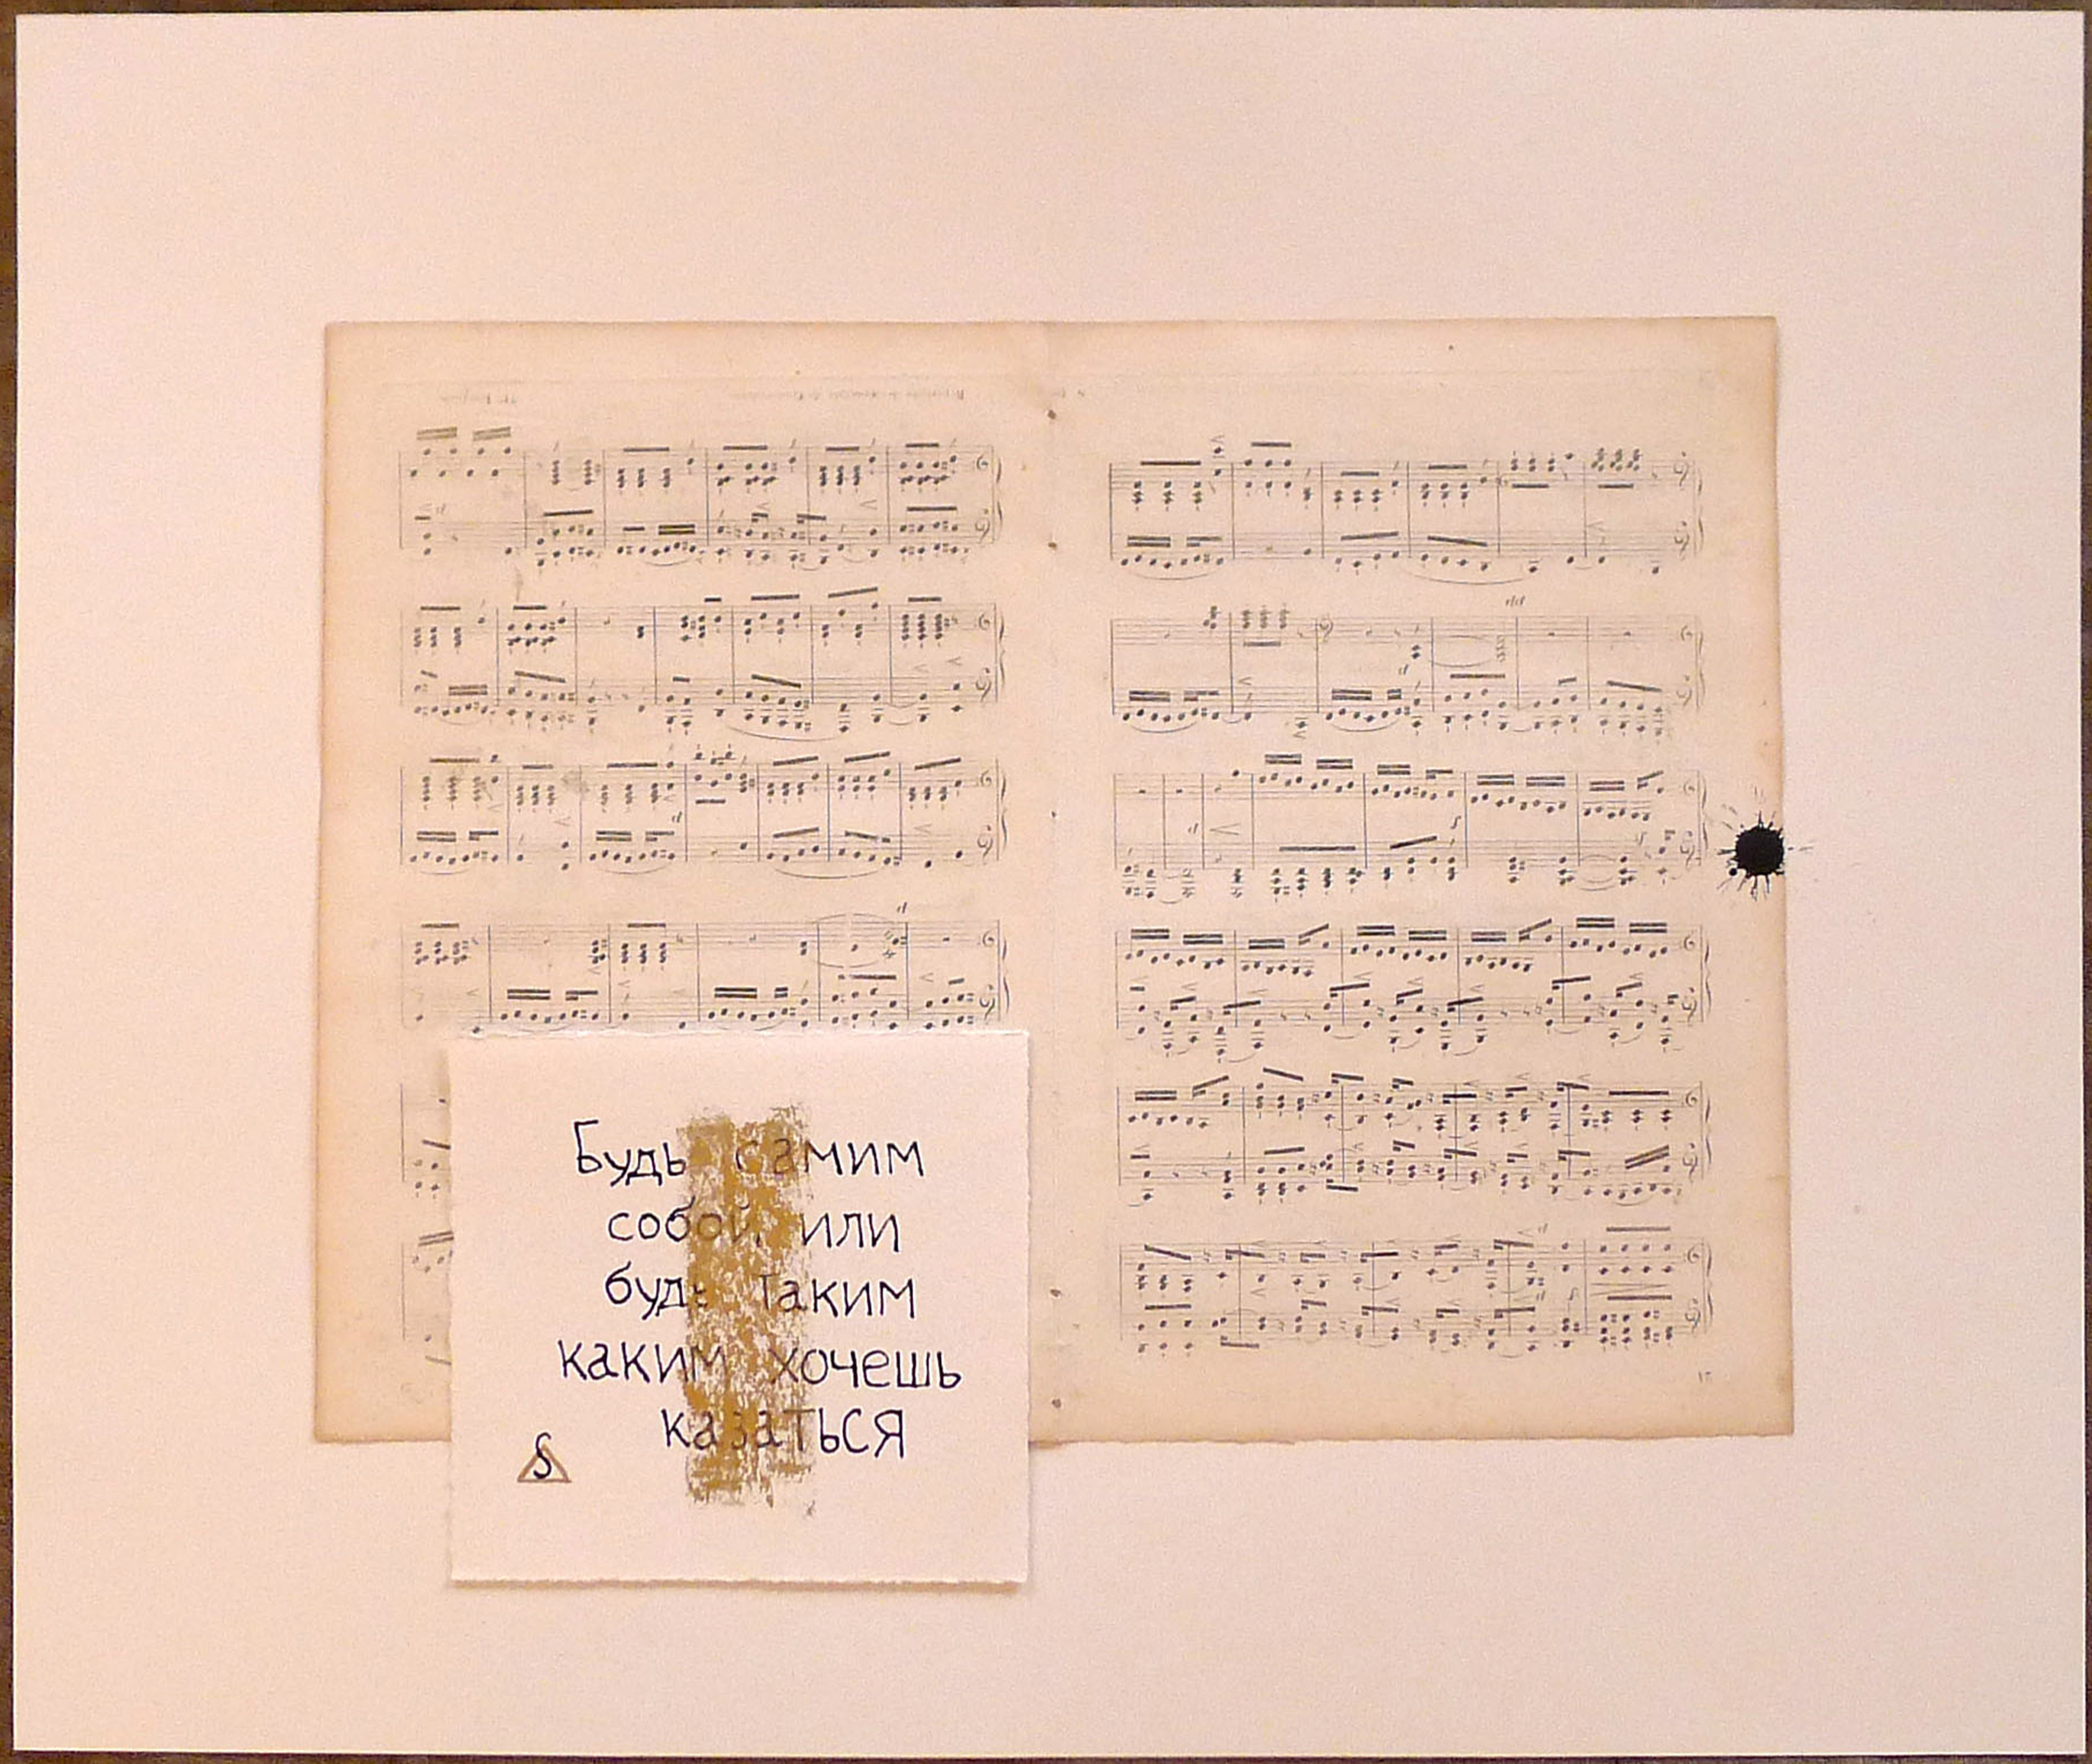 Будь самим
собой или
будь таким
каким хочешь
казаться